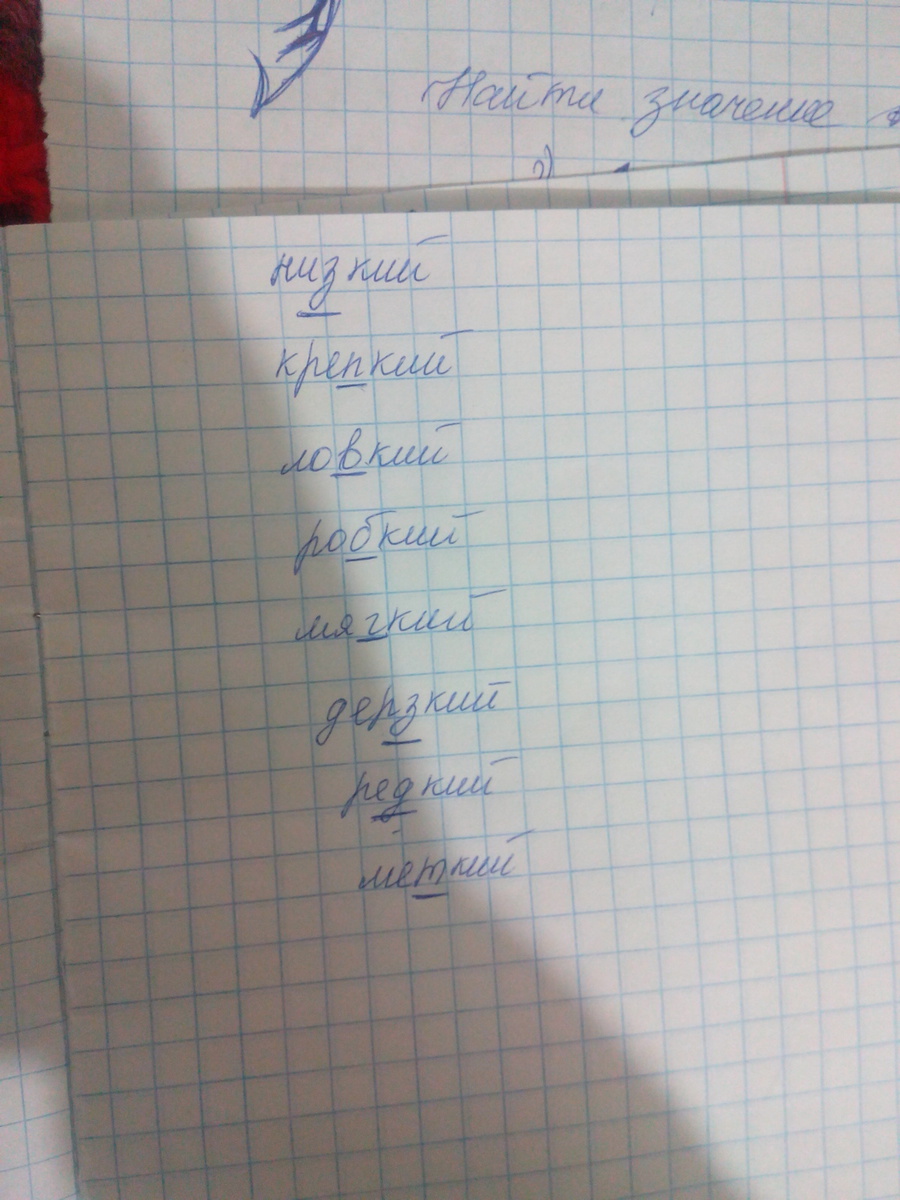 Найти значение
2)
низкий
крепкий
ловкий
робкий
мягкий
дерзкий
редкий
меткий